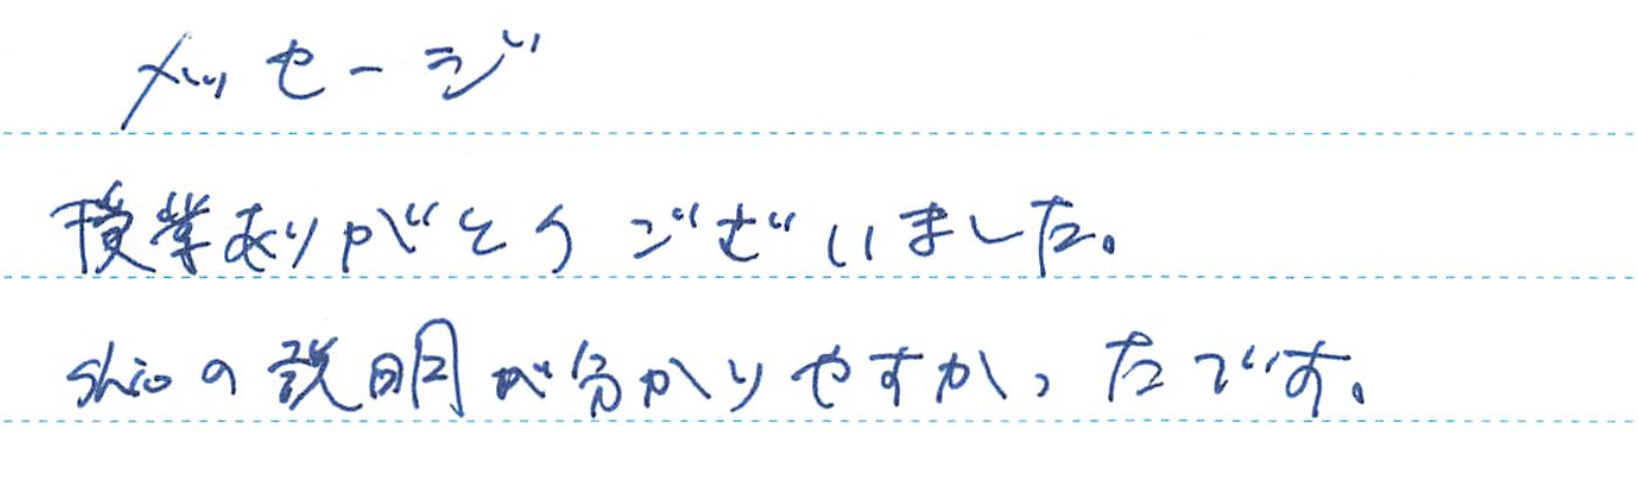 メッセージ
授業ありがとうございました。
shioの説明が分かりやすかったです。